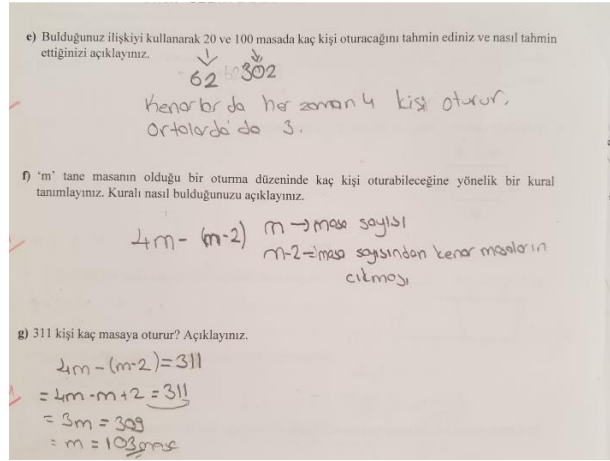 e) Bulduğunuz ilişkiyi kullanarak 20 ve 100 masada kaç kişi oturacağını tahmin ediniz ve nasıl tahmin
ettiğinizi açıklayınız.
62 302
Kenarlarda her zaman 4 kişi oturur.
Ortalarda da 3.
f) ‘m’ tane masanın olduğu bir oturma düzeninde kaç kişi oturabileceğine yönelik bir kural
tanımlayınız. Kuralı nasıl bulduğunuzu açıklayınız.
4m - (m-2) m → masa sayısı
m-2 = masa sayısından kenar masaların
çıkması
g) 311 kişi kaç masaya oturur? Açıklayınız.
4m - (m-2) = 311
= 4m - m + 2 = 311
= 3m = 309
= m = 103 masa